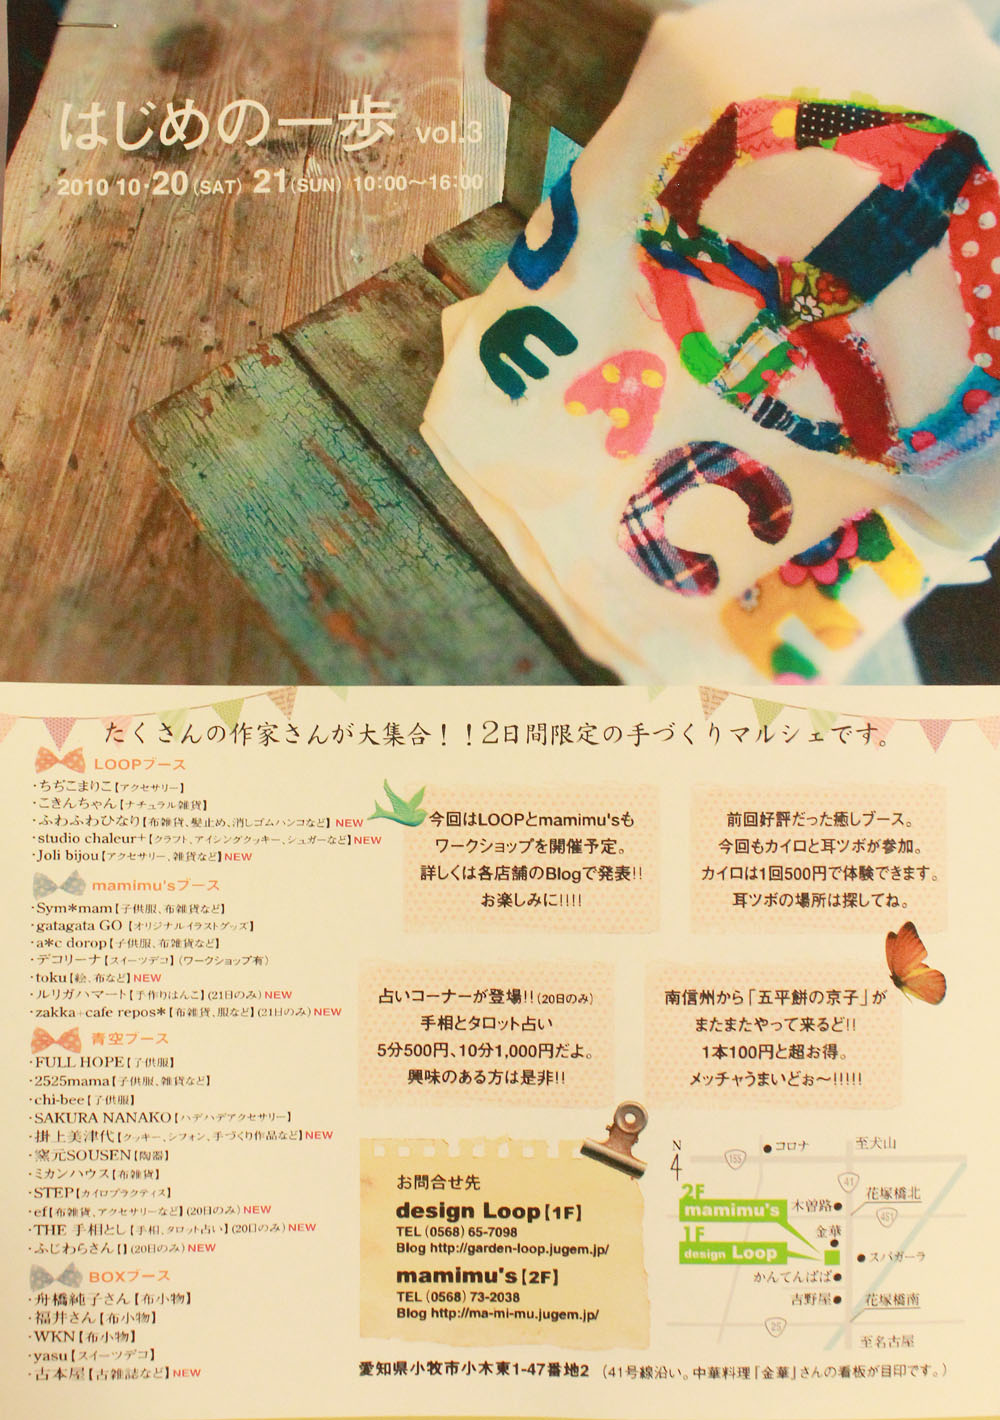 はじめの一歩 vol.3
2010 10・20(SAT) 21(SUN) 10:00〜16:00
PEACE
たくさんの作家さんが大集合！！2日間限定の手づくりマルシェです。
LOOPブース
・ちぢこまりこ【アクセサリー】
・こきんちゃん【ナチュラル雑貨】
・ふわふわひなり【布雑貨、髪止め、消しゴムハンコなど】NEW
・studio chaleur+【クラフト、アイシングクッキー、シュガーなど】NEW
・Joli bijou【アクセサリー、雑貨など】NEW
mamimu'sブース
・Sym*mam【子供服、布雑貨など】
・gatagata GO【オリジナルイラストグッズ】
・a*c dorop【子供服、布雑貨など】
・デコリーナ【スイーツデコ】(ワークショップ有)
・toku【絵、布など】NEW
・ルリガハマート【手作りはんこ】(21日のみ)NEW
・zakka+cafe repos*【布雑貨、服など】(21日のみ)NEW
青空ブース
・FULL HOPE【子供服】
・2525mama【子供服、雑貨など】
・chi-bee【子供服】
・SAKURA NANAKO【ハデハデアクセサリー】
・掛上美津代【クッキー、シフォン、手づくり作品など】NEW
・窯元SOUSEN【陶器】
・ミカンハウス【布雑貨】
・STEP【カイロプラクティス】
・ef【布雑貨、アクセサリーなど】(20日のみ)NEW
・THE 手相とし【手相、タロット占い】(20日のみ)NEW
・ふじわらさん【】(20日のみ)NEW
BOXブース
・舟橋純子さん【布小物】
・福井さん【布小物】
・WKN【布小物】
・yasu【スイーツデコ】
・古本屋【古雑誌など】NEW
今回はLOOPとmamimu'sも
ワークショップを開催予定。
詳しくは各店舗のBlogで発表!!
お楽しみに!!!!
前回好評だった癒しブース。
今回もカイロと耳ツボが参加。
カイロは1回500円で体験できます。
耳ツボの場所は探してね。
占いコーナーが登場!!(20日のみ)
手相とタロット占い
5分500円、10分1,000円だよ。
興味のある方は是非!!
南信州から「五平餅の京子」が
またまたやって来るど!!
1本100円と超お得。
メッチャうまいどぉ〜!!!!!
お問合せ先
design Loop【1F】
TEL (0568) 65-7098
Blog http://garden-loop.jugem.jp/
mamimu's【2F】
TEL (0568) 73-2038
Blog http://ma-mi-mu.jugem.jp/
N
4
155
コロナ
至犬山
41
花塚橋北
451
2F
mamimu's
木曽路
金華
1F
design Loop
スバガーラ
かんてんぱぱ
吉野屋
花塚橋南
25
至名古屋
愛知県小牧市小木東1-47番地2 (41号線沿い。中華料理『金華』さんの看板が目印です。)